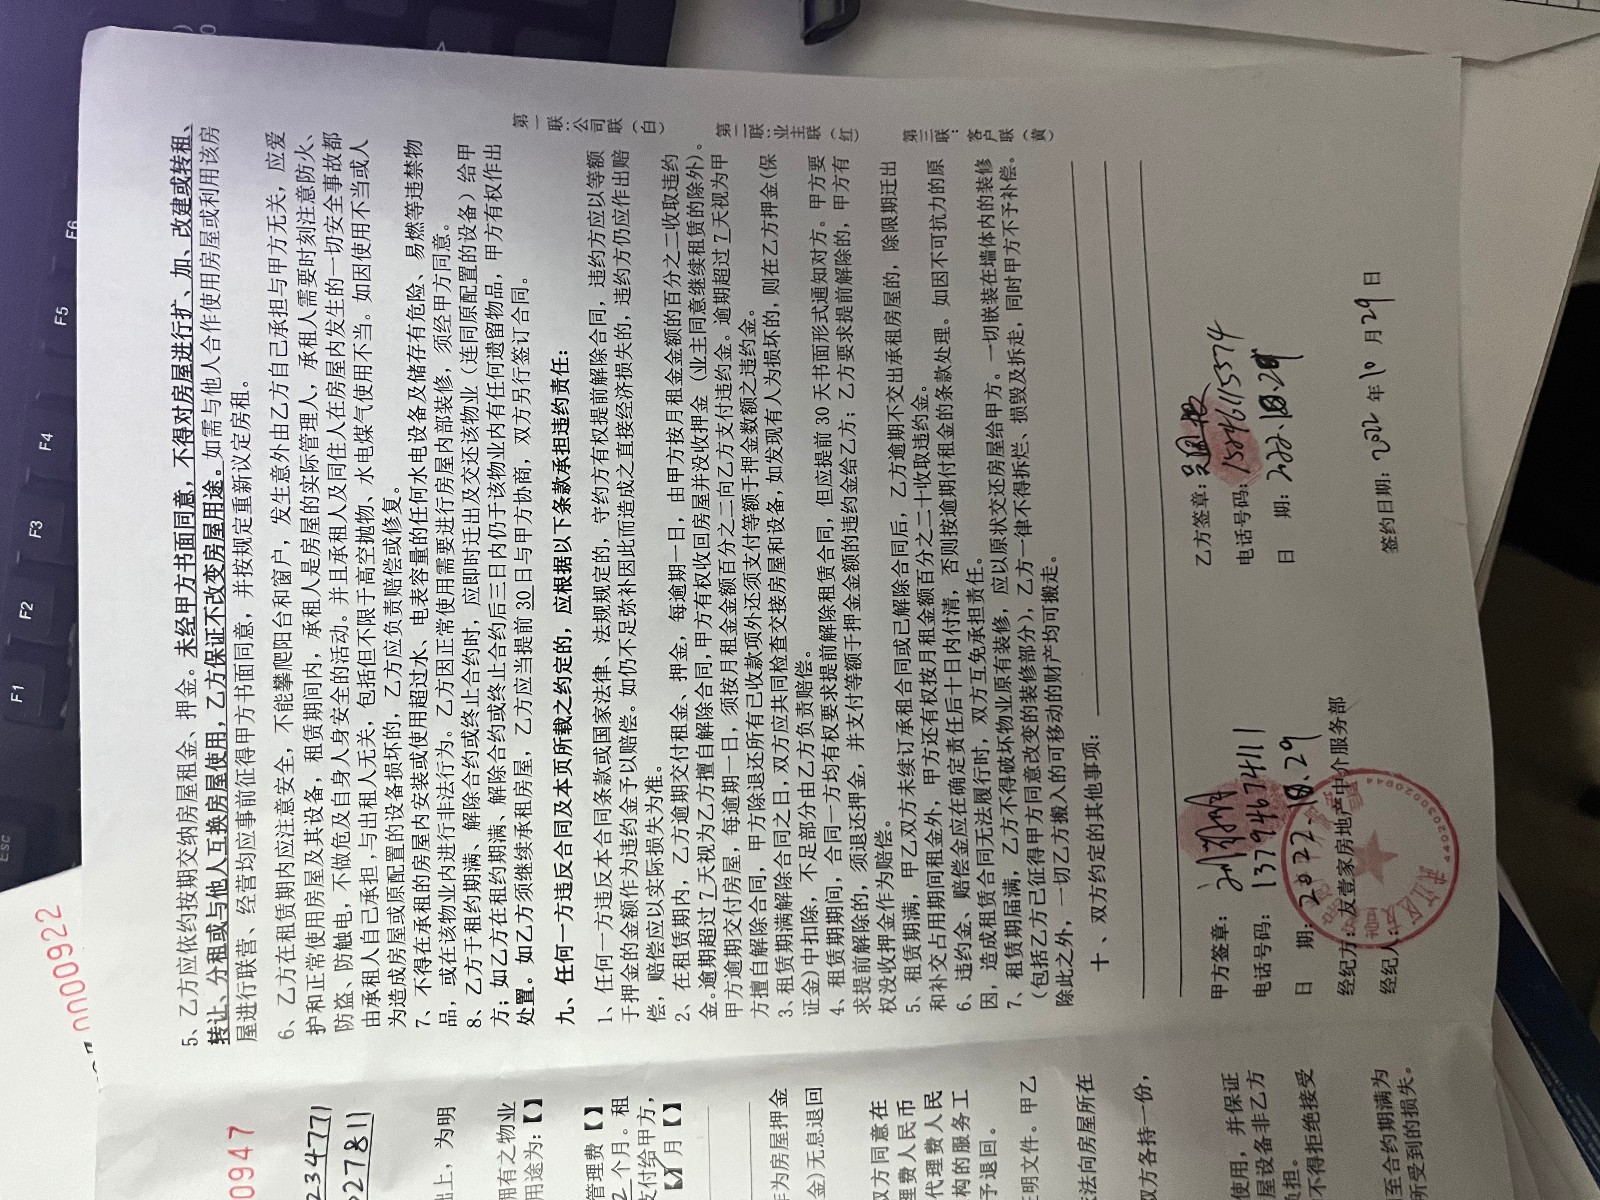 5、乙方应依约按期交纳房屋租金、押金。未经甲方书面同意，不得对房屋进行扩、加、改建或转租、
转让、分租或与他人互换房屋使用，乙方保证不改变房屋用途。如需与他人合作使用房屋或利用该房
屋进行联营、经营均应事前征得甲方书面同意，并按规定重新议定房租。
6、乙方在租赁期内应注意安全，不能攀爬阳台和窗户，发生意外由乙方自己承担与甲方无关，应爱
护和正常使用房屋及其设备，租赁期间内，承租人是房屋的实际管理人，承租人需要时刻注意防火、
防盗、防触电，不做危及自身人身安全的活动。并且承租人及同住人在房屋内发生的一切安全事故都
由承租人自己承担，与出租人无关，包括但不限于高空抛物、水电煤气使用不当。如因使用不当或人
为造成房屋或原配置的设备损坏的，乙方应负责赔偿或修复。
7、不得在承租的房屋内安装或使用超过水、电表容量的任何水电设备及储存有危险、易燃等违禁物
品，或在该物业内进行非法行为。乙方因正常使用需要进行房屋内部装修，须经甲方同意。
8、乙方于租约期满、解除合约或终止合约时，应即时迁出及交还该物业（连同原配置的设备）给甲
方；如乙方在租约期满、解除合约或终止合约后三日内仍于该物业内有任何遗留物品，甲方有权作出
处置。如乙方须继续承租房屋，乙方应当提前30日与甲方协商，双方另行签订合同。
九、任何一方违反合同及本页所载之约定的，应根据以下条款承担违约责任：
1、任何一方违反本合同条款或国家法律、法规规定的，守约方有权提前解除合同，违约方应以等额
于押金的金额作为违约金予以赔偿。如仍不足弥补因此而造成之直接经济损失的，违约方仍应作出赔
偿，赔偿应以实际损失为准。
2、在租赁期内，乙方逾期交付租金、押金，每逾期一日，由甲方按月租金金额的百分之二收取违约
金。逾期超过7天视为乙方擅自解除合同，甲方有权收回房屋并没收押金（业主同意继续租赁的除外）。
甲方逾期交付房屋，每逾期一日，须按月租金金额百分之二向乙方支付违约金。逾期超过7天视为甲
方擅自解除合同，甲方除退还所有已收款项外还须支付等额于押金数额之违约金。
3、租赁期满解除合同之日，双方应共同检查交接房屋和设备，如发现有人为损坏的，则在乙方押金（保
证金）中扣除，不足部分由乙方负责赔偿。
4、租赁期期间，合同一方均有权要求提前解除租赁合同，但应提前30天书面形式通知对方。甲方要
求提前解除的，须退还押金，并支付等额于押金金额的违约金给乙方；乙方要求提前解除的，甲方有
权没收押金作为赔偿。
5、租赁期满，甲乙双方未续订承租合同或已解除合同后，乙方逾期不交出承租房屋的，除限期迁出
和补交占用期间租金外，甲方还有权按月租金额百分之二十收取违约金。
6、违约金、赔偿金应在确定责任后十日内付清，否则按逾期付租金的条款处理。如因不可抗力的原
因，造成租赁合同无法履行时，双方互免承担责任。
7、租赁期届满，乙方不得破坏物业原有装修，应以原状交还房屋给甲方。一切嵌装在墙体内的装修
（包括乙方已征得甲方同意改变的装修部分），乙方一律不得拆烂、损毁及拆走，同时甲方不予补偿。
除此之外，一切乙方搬入的可移动的财产均可搬走。
十、双方约定的其他事项：
甲方签章：
电话号码：13794674111
日 期：2022.10.29
经纪方：友壹家房地产中介服务部
经纪人：
乙方签章：
电话号码：15246115374
日 期：222.10.29
签约日期：2022年10月29日
第一联：公司联（白）
第二联：业主联（红）
第三联：客户联（黄）
0000922
0947
234771
227811
上，为明
拥有之物业
用途为：【】
管理费【】
2个月。租
支付给甲方，
月【】
作为房屋押金
金)无息退回
双方同意在
理费人民币
代理费人民
构的服务工
予退回。
证明文件。甲乙
法向房屋所在
双方各持一份，
使用，并保证
屋设备非乙方
负担。
不得拒绝接受
至合约期满为
所受到的损失。
Esc
F1
F2
F3
F4
F5
F6